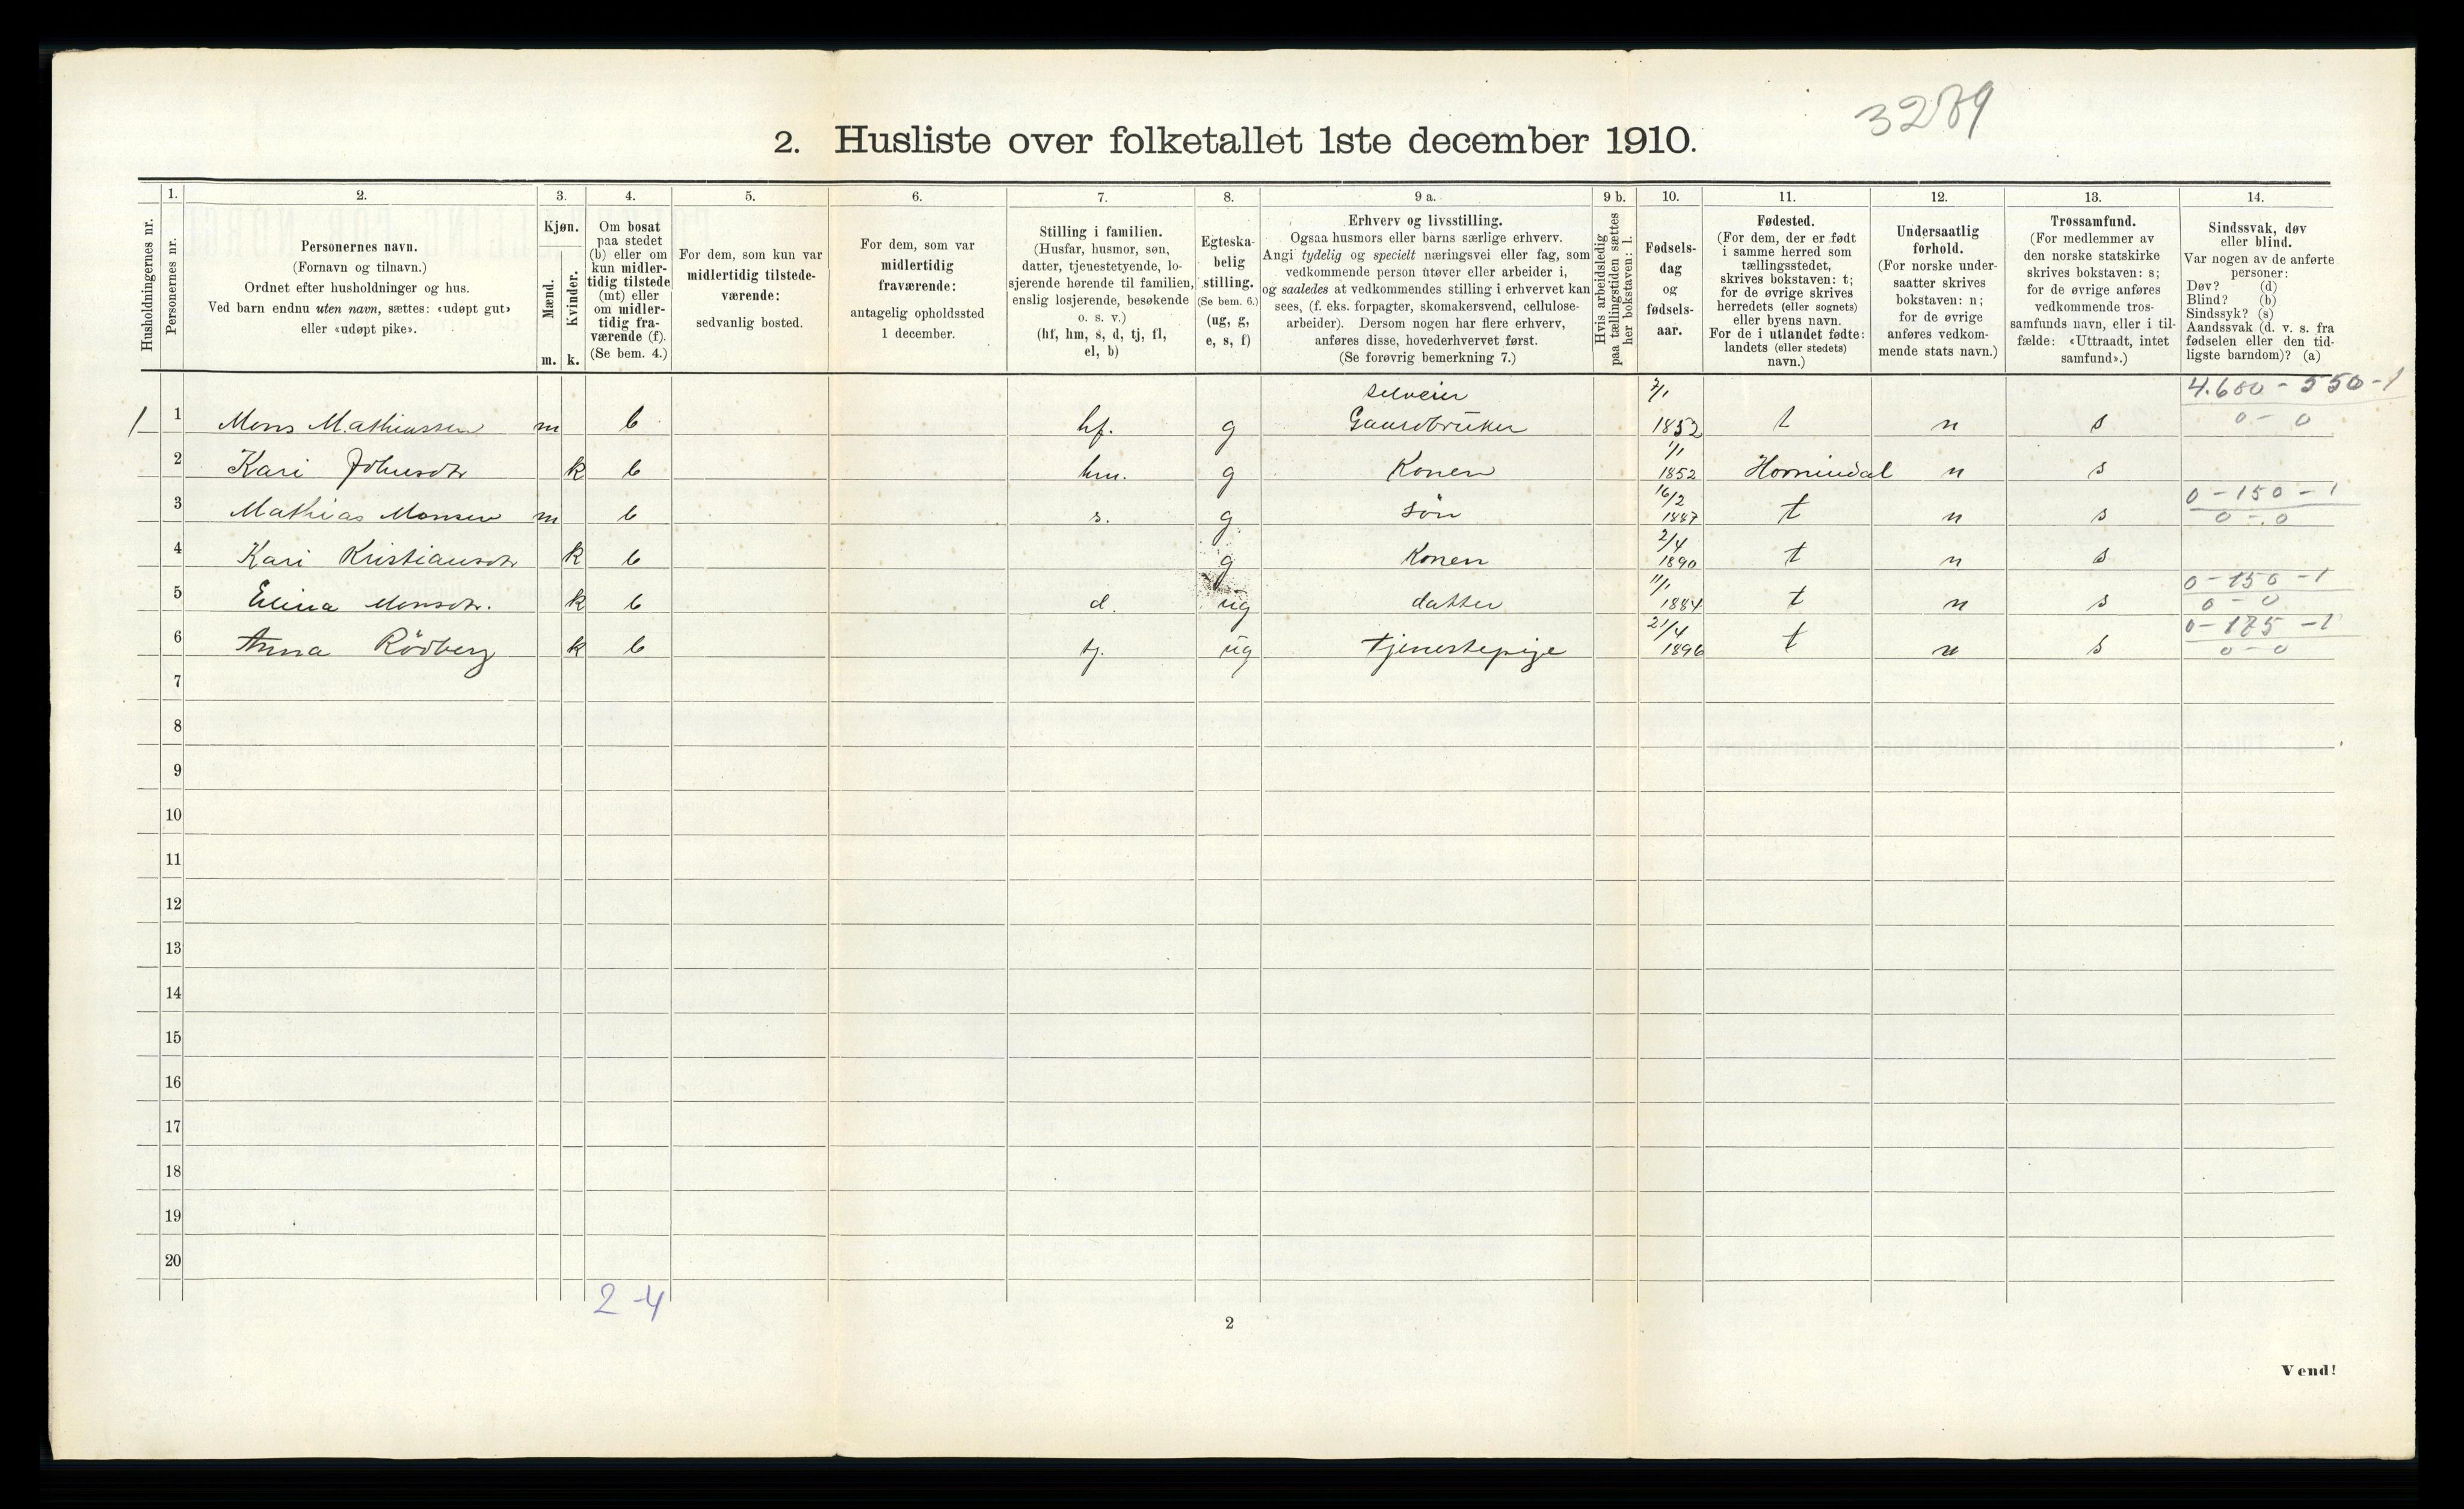 3289
2. Husliste over folketallet 1ste december 1910.
Husholdningernes nr.
1.
Personernes nr.
2.
Personernes navn.
(Fornavn og tilnavn.)
Ordnet efter husholdninger og hus.
Ved barn endnu uten navn, sættes: «udøpt gut»
eller «udøpt pike».
3.
Kjøn.
Mænd.
Kvinder.
m. k.
4.
Om bosat
paa stedet
(b) eller om
kun midler-
tidig tilstede
(mt) eller
om midler-
tidig fra-
værende (f).
(Se bem. 4.)
5.
For dem, som kun var
midlertidig tilstede-
værende:
sedvanlig bosted.
6.
For dem, som var
midlertidig
fraværende:
antagelig opholdssted
1 december.
7.
Stilling i familien.
(Husfar, husmor, søn,
datter, tjenestetyende, lo-
sjerende hørende til familien,
enslig losjerende, besøkende
o. s. v.)
(hf, hm, s, d, tj, fl,
el, b)
8.
Egteska-
belig
stilling.
(Se bem. 6.)
(ug, g,
e, s, f)
9 a.
Erhverv og livsstilling.
Ogsaa husmors eller barns særlige erhverv.
Angi tydelig og specielt næringsvei eller fag, som
vedkommende person utøver eller arbeider i,
og saaledes at vedkommendes stilling i erhvervet kan
sees, (f. eks. forpagter, skomakersvend, cellulose-
arbeider). Dersom nogen har flere erhverv,
anføres disse, hovederhvervet først.
(Se forøvrig bemerkning 7.)
9 b.
Hvis arbeidsledig
paa tællingstiden sættes
her bokstaven: l.
10.
Fødsels-
dag
og
fødsels-
aar.
11.
Fødested.
(For dem, der er født
i samme herred som
tællingsstedet,
skrives bokstaven: t;
for de øvrige skrives
herredets (eller sognets)
eller byens navn.
For de i utlandet fødte:
landets (eller stedets)
navn.)
12.
Undersaatlig
forhold.
(For norske under-
saatter skrives
bokstaven: n;
for de øvrige
anføres vedkom-
mende stats navn.)
13.
Trossamfund.
(For medlemmer av
den norske statskirke
skrives bokstaven: s;
for de øvrige anføres
vedkommende tros-
samfunds navn, eller i til-
fælde: «Uttraadt, intet
samfund».)
14.
Sindssvak, døv
eller blind.
Var nogen av de anførte
personer:
Døv? (d)
Blind? (b)
Sindssyk? (s)
Aandssvak (d. v. s. fra
fødselen eller den tid-
ligste barndom)? (a)
selveier 7/1 4.600 - 550 - 1
1 1 Mons Mathiassen m b hf. g Gaardbruker 1852 t n s 0 - 0
1/1
2 Kari Johnsdtr k b hm. g Konen 1852 Hornindal n s
16/2 0 - 150 - 1
3 Mathias Monsen m b s. g søn 1887 t n s 0 - 0
2/4
4 Kari Kristiansdtr k b g Konen 1890 t n s
11/1 0 - 150 - 1
5 Elina Monsdtr. k b d. ug datter 1884 t n s 0 - 0
21/4 0 - 175 - 1
6 Anna Rödberg k b tj. ug Tjenestepige 1896 t n s 0 - 0
7
8
9
10
11
12
13
14
15
16
17
18
19
20
2 - 4
2
Vend!